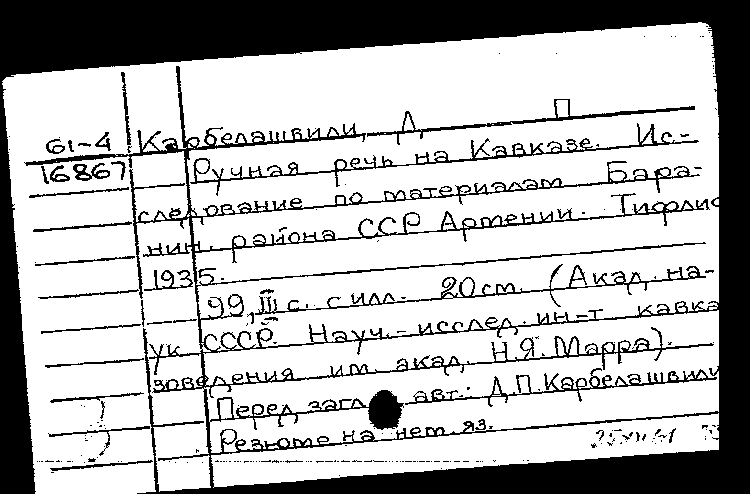 61-4 Карбелашвили, Д. П
16867 Ручная речь на Кавказе. Ис-
следование по материалам Бара-
нин. района ССР Армении. Тифлис
1935.
99, III с. с илл. 20 см. (Акад. на-
ук СССР. Науч.-исслед. ин-т кавка
зоведения им. акад. Н.Я. Марра).
Перед загл. авт.: Д.П. Карбелашвили
Резюме на нем. яз.